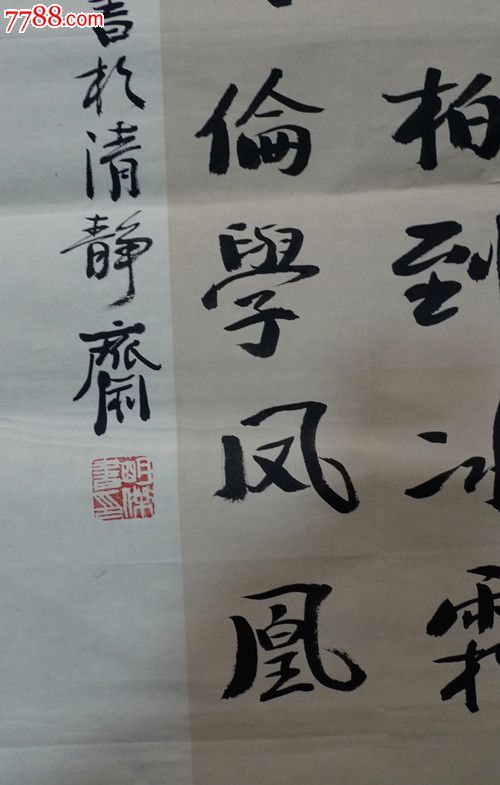 7788.com
柏到冰霜
倫學凤凰
書於清靜齋